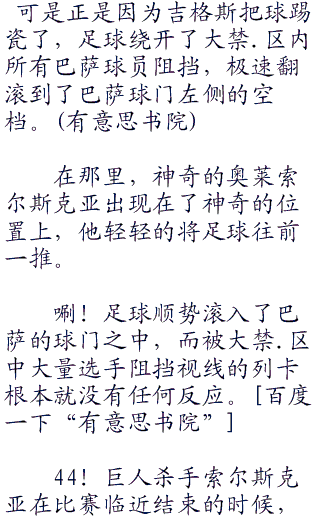 可是正是因为吉格斯把球踢
瓷了，足球绕开了大禁.区内
所有巴萨球员阻挡，极速翻
滚到了巴萨球门左侧的空
档。(有意思书院)
在那里，神奇的奥莱索
尔斯克亚出现在了神奇的位
置上，他轻轻的将足球往前
一推。
唰！足球顺势滚入了巴
萨的球门之中，而被大禁.区
中大量选手阻挡视线的列卡
根本就没有任何反应。[百度
一下“有意思书院”]
44！巨人杀手索尔斯克
亚在比赛临近结束的时候，